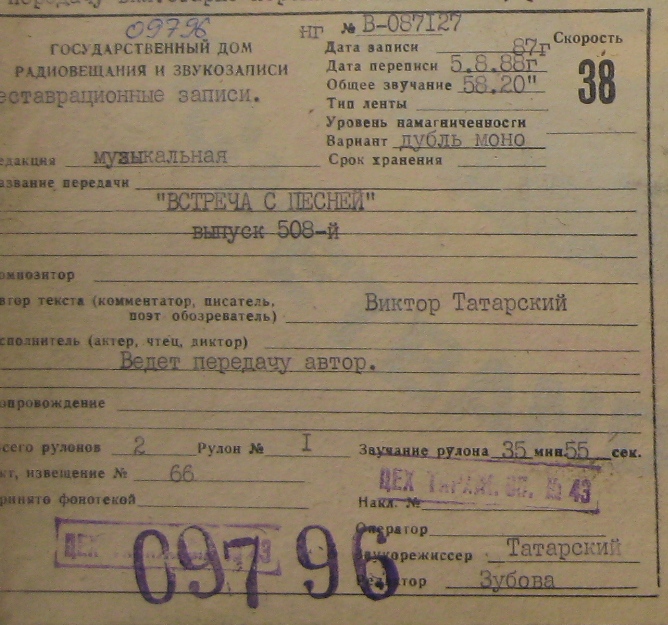 09796
нг № В-087127
ГОСУДАРСТВЕННЫЙ ДОМ
РАДИОВЕЩАНИЯ И ЗВУКОЗАПИСИ
еставрационные записи.
Дата записи 87г
Скорость
38
Дата переписи 5.8.88г
Общее звучание 58.20"
Тип ленты
Уровень намагниченности
Вариант дубль моно
Срок хранения
едакция музыкальная
азвание передачи
"ВСТРЕЧА С ПЕСНЕЙ"
выпуск 508-й
омпозитор
втор текста (комментатор, писатель,
поэт обозреватель) Виктор Татарский
сполнитель (актер, чтец, диктор)
Ведет передачу автор.
опровождение
сего рулонов 2 Рулон № I Звучание рулона 35 мин. 55 сек.
кт, извещение № 66
ринято фонотекой
ЦЕХ № 43
Накл. №
Оператор
ЦЕХ
Звукорежиссер Татарский
Редактор Зубова
09796